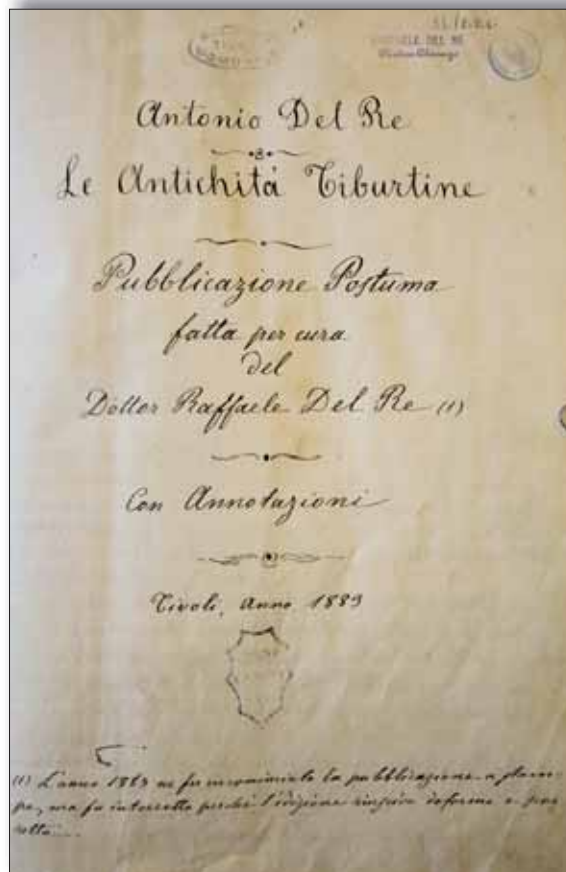 RAFFAELE DEL RE
Antonio Del Re
Le Antichità Tiburtine
Pubblicazione Postuma
fatta per cura
del
Dottor Raffaele Del Re (1)
Con Annotazioni
Tivoli, Anno 1889
(1) L'anno 1883 ne fu incominciata la pubblicazione a stam-
pe, ma fu interrotta perchè l'edizione riusciva deforme e scor
retta....